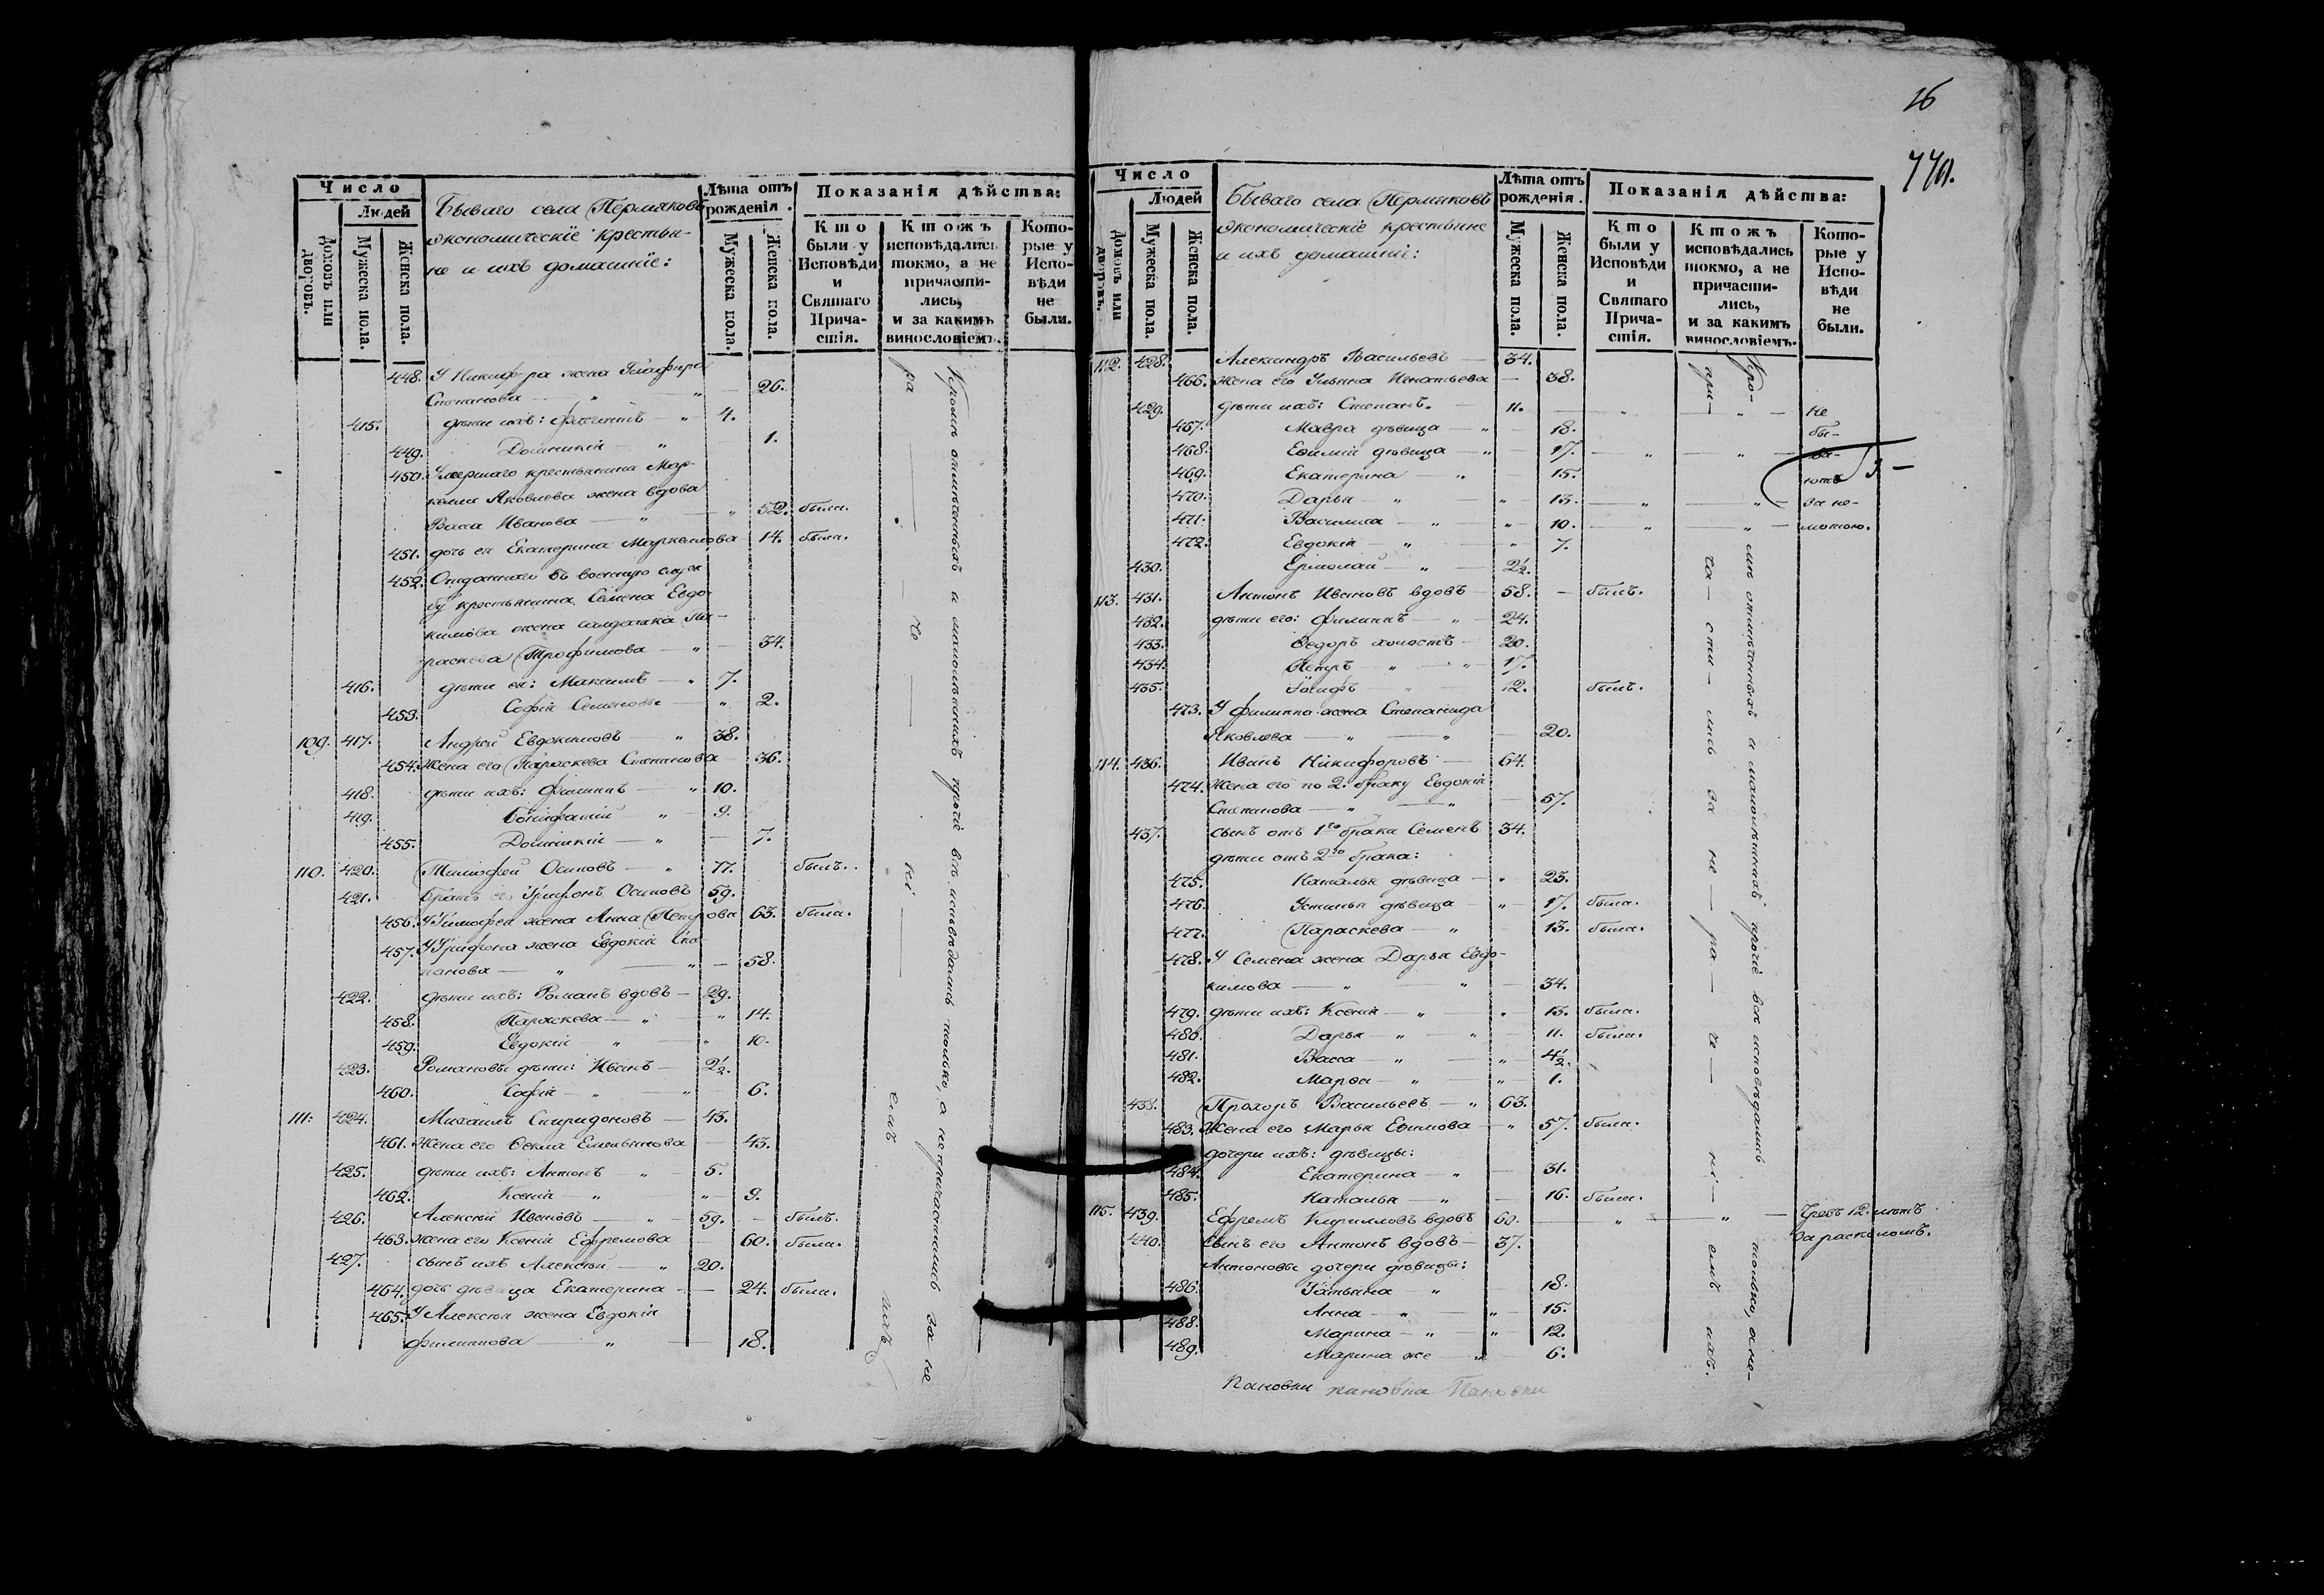 Число
Людей
Домовъ или дворовъ.
Мужеска пола.
Женска пола.
Бываго села Пермяковъ
экономическіе крестья-
не и ихъ домашніе:
Лѣта отъ рожденія.
Мужеска пола.
Женска пола.
Показанія дѣйства:
Кто были у Исповѣди и Святаго Прича-стія.
Ктожъ исповѣдались токмо, а не причасти-лись, и за какимъ винословіемъ.
Кото-рые у Испо-вѣди не были.
448. У Никифора жена Глафира
Степанова — „ — „ 26.
415. дѣти ихъ: — „ 4.
449. Домникія — „ 1.
450. Умершаго крестьянина Мар-
келла Яковлева жена вдова
Васса Иванова — „ — „ 52. была.
451. дочь ея Екатерина Маркеллова 14. была.
452. Отданнаго въ военную служ
бу крестьянина Семена Евдо-
кимова жена солдатка Па-
раскева Трофимова — „ — 34.
416. дѣти ея: Максимъ — „ 7.
453. Софія Семеновы — „ 2.
109. 417. Андрей Евдокимовъ — „ 38.
454. Жена его Параскева Степанова 36.
418. дѣти ихъ: Филиппъ — „ 10.
419. Бонифатій „ — 9.
455. Домникія — „ — 7.
110. 420. Тимофей Осиповъ — „ 77. былъ.
421. Братъ его Трифонъ Осиповъ 59.
456. У Тимофея жена Анна Петрова 63. была.
457. У Трифона жена Евдокія Сте-
панова — „ — „ — 58.
422. дѣти ихъ: Романъ вдовъ — 29.
458. Параскева — „ — „ 14.
459. Евдокія — „ — „ 10.
423. Романовы дѣти: Иванъ — 2½.
460. Софія — „ — „ 6.
111. 424. Михаилъ Спиридоновъ — 43.
461. Жена его Ѳекла Емельянова — 43.
425. дѣти ихъ: Антонъ „ — 5.
462. Ксенія — „ „ — 9.
426. Алексѣй Ивановъ — „ — 59. — былъ.
463. жена его Ксенія Ефремова 60. была.
427. сынъ ихъ Алексѣй — „ 20.
464. дочь дѣвица Екатерина — 24. была.
465. У Алексѣя жена Евдокія
Филиппова — „ — 18.
Кромѣ отмѣченныхъ и малолѣтнихъ прочіе всѣ исповѣдались только, а не причастились за не
ра — че — ні — емъ ихъ
16
770.
Число
Людей
Домовъ или дворовъ.
Мужеска пола.
Женска пола.
Бываго села Пермяковъ
экономическіе крестьяне
и ихъ домашніе:
Лѣта отъ рожденія.
Мужеска пола.
Женска пола.
Показанія дѣйства:
Кто были у Исповѣди и Святаго Прича-стія.
Ктожъ исповѣдались токмо, а не причасти-лись, и за какимъ винословіемъ.
Кото-рые у Испо-вѣди не были.
112. 428. Александръ Васильевъ — 34.
466. жена его Ульяна Игнатьева — 38.
429. дѣти ихъ: Степанъ. — 11. — „ — „ — Не
467. Мавра дѣвица — „ — 18. бы-
468. Евѳимія дѣвица — „ — 17. — „ — „ — ва-
469. Екатерина — „ — 15. ютъ
470. Дарья — „ — „ 13. — „ — „ — За не-
471. Василиса — „ „ 10. — „ — „ — мотою.
472. Евдокія — „ „ 7.
430. Ермолай — „ — 2½.
113. 431. Антонъ Ивановъ вдовъ — 58. — былъ.
432. дѣти его: Филиппъ — „ 24.
433. Ѳедоръ холостъ — 20.
434. Петръ — „ — „ 17.
435. Іосифъ „ — 12. былъ.
473. У Филиппа жена Степанида
Яковлева — „ — „ — 20.
114. 436. Иванъ Никифоровъ — 64.
474. Жена его по 2. браку Евдокія
Степанова — „ — „ — 57.
437. сынъ отъ 1го брака Семенъ 34.
дѣти отъ 2го брака:
475. Наталья дѣвица — „ 23.
476. Устинья дѣвица — „ 17. была.
477. Параскева — „ 13. была.
478. У Семена жена Дарья Евдо-
кимова — „ — „ — 34.
479. дѣти ихъ: Ксенія — „ „ 13. была.
480. Дарья — „ — „ 11. была.
481. Васса — „ — „ 4½.
482. Марѳа — „ — „ 1.
438. Прохоръ Васильевъ — „ 63.
483. Жена его Марья Евѳимова — „ 57. была.
дочери ихъ: дѣвицы:
484. Екатерина — „ — 31.
485. Наталья — „ — 16. была.
115. 439. Ефремъ Кирилловъ вдовъ 60. — „ — „ — Чрезъ 12. лѣтъ
440. Сынъ его Антонъ вдовъ — 37. За расколомъ.
Антоновы дочери дѣвицы:
486. Татьяна „ — 18.
Анна — „ — „ 15.
488. Марина — „ — „ 12.
489. Марина же — „ 6.
Кро-мѣ отмѣченныхъ и малолѣтнихъ прочіе всѣ исповѣдались только, а не-
при-ча-сти-лись за не-ра-че-ні-емъ ихъ.
Пановки пановки Пановки